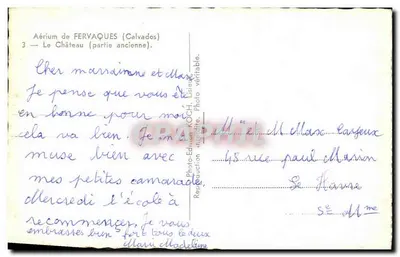 Aérium de FERVAQUES (Calvados)
3 — Le Château (partie ancienne).
Cher marrainne et Max
Je pense que vous été
en bonne pour moi
cela va bien Je m'a
muse bien avec
mes petites camarades
Mercredi l'école à
recommencer, Je vous
embrasses bien fort tous le deux
Marie Madeleine
M et M Max
45 rue paul Marion
Le Havre
Se Mme
Reproduction Photo véritable.